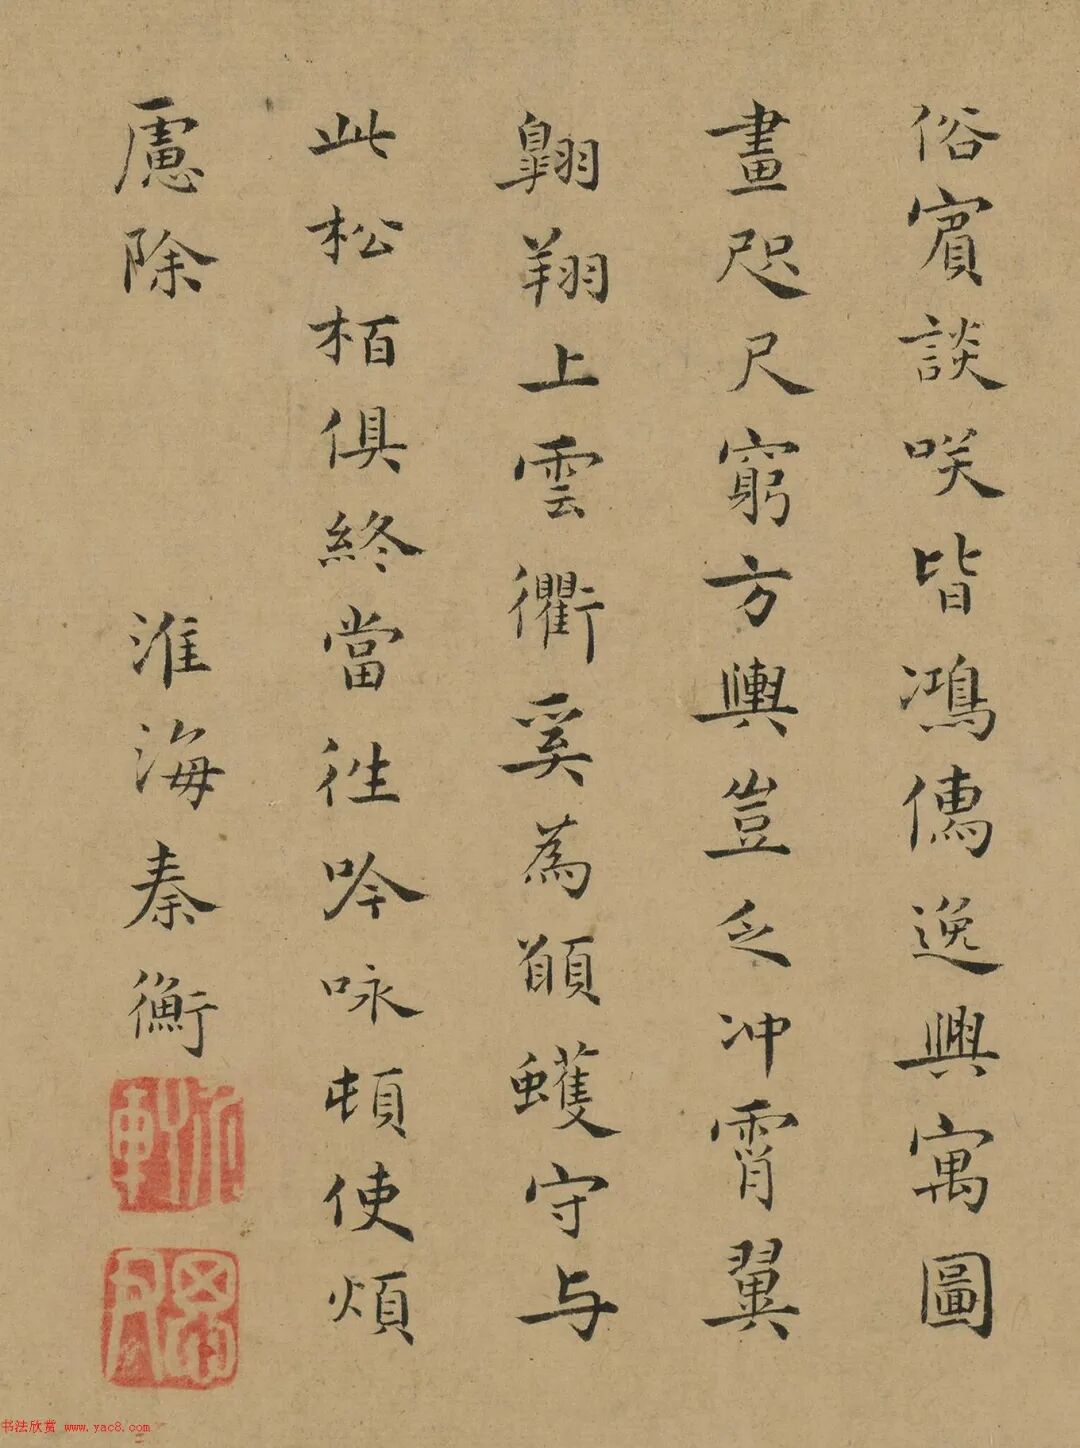 俗賓談咲皆鴻儁逸興寓圖
畫咫尺窮方輿豈乏冲霄翼
翺翔上雲衢奚為顓蠖守与
此松栢俱終當徃吟咏頓使煩
慮除
淮海秦衡
书法欣赏 www.yac8.com